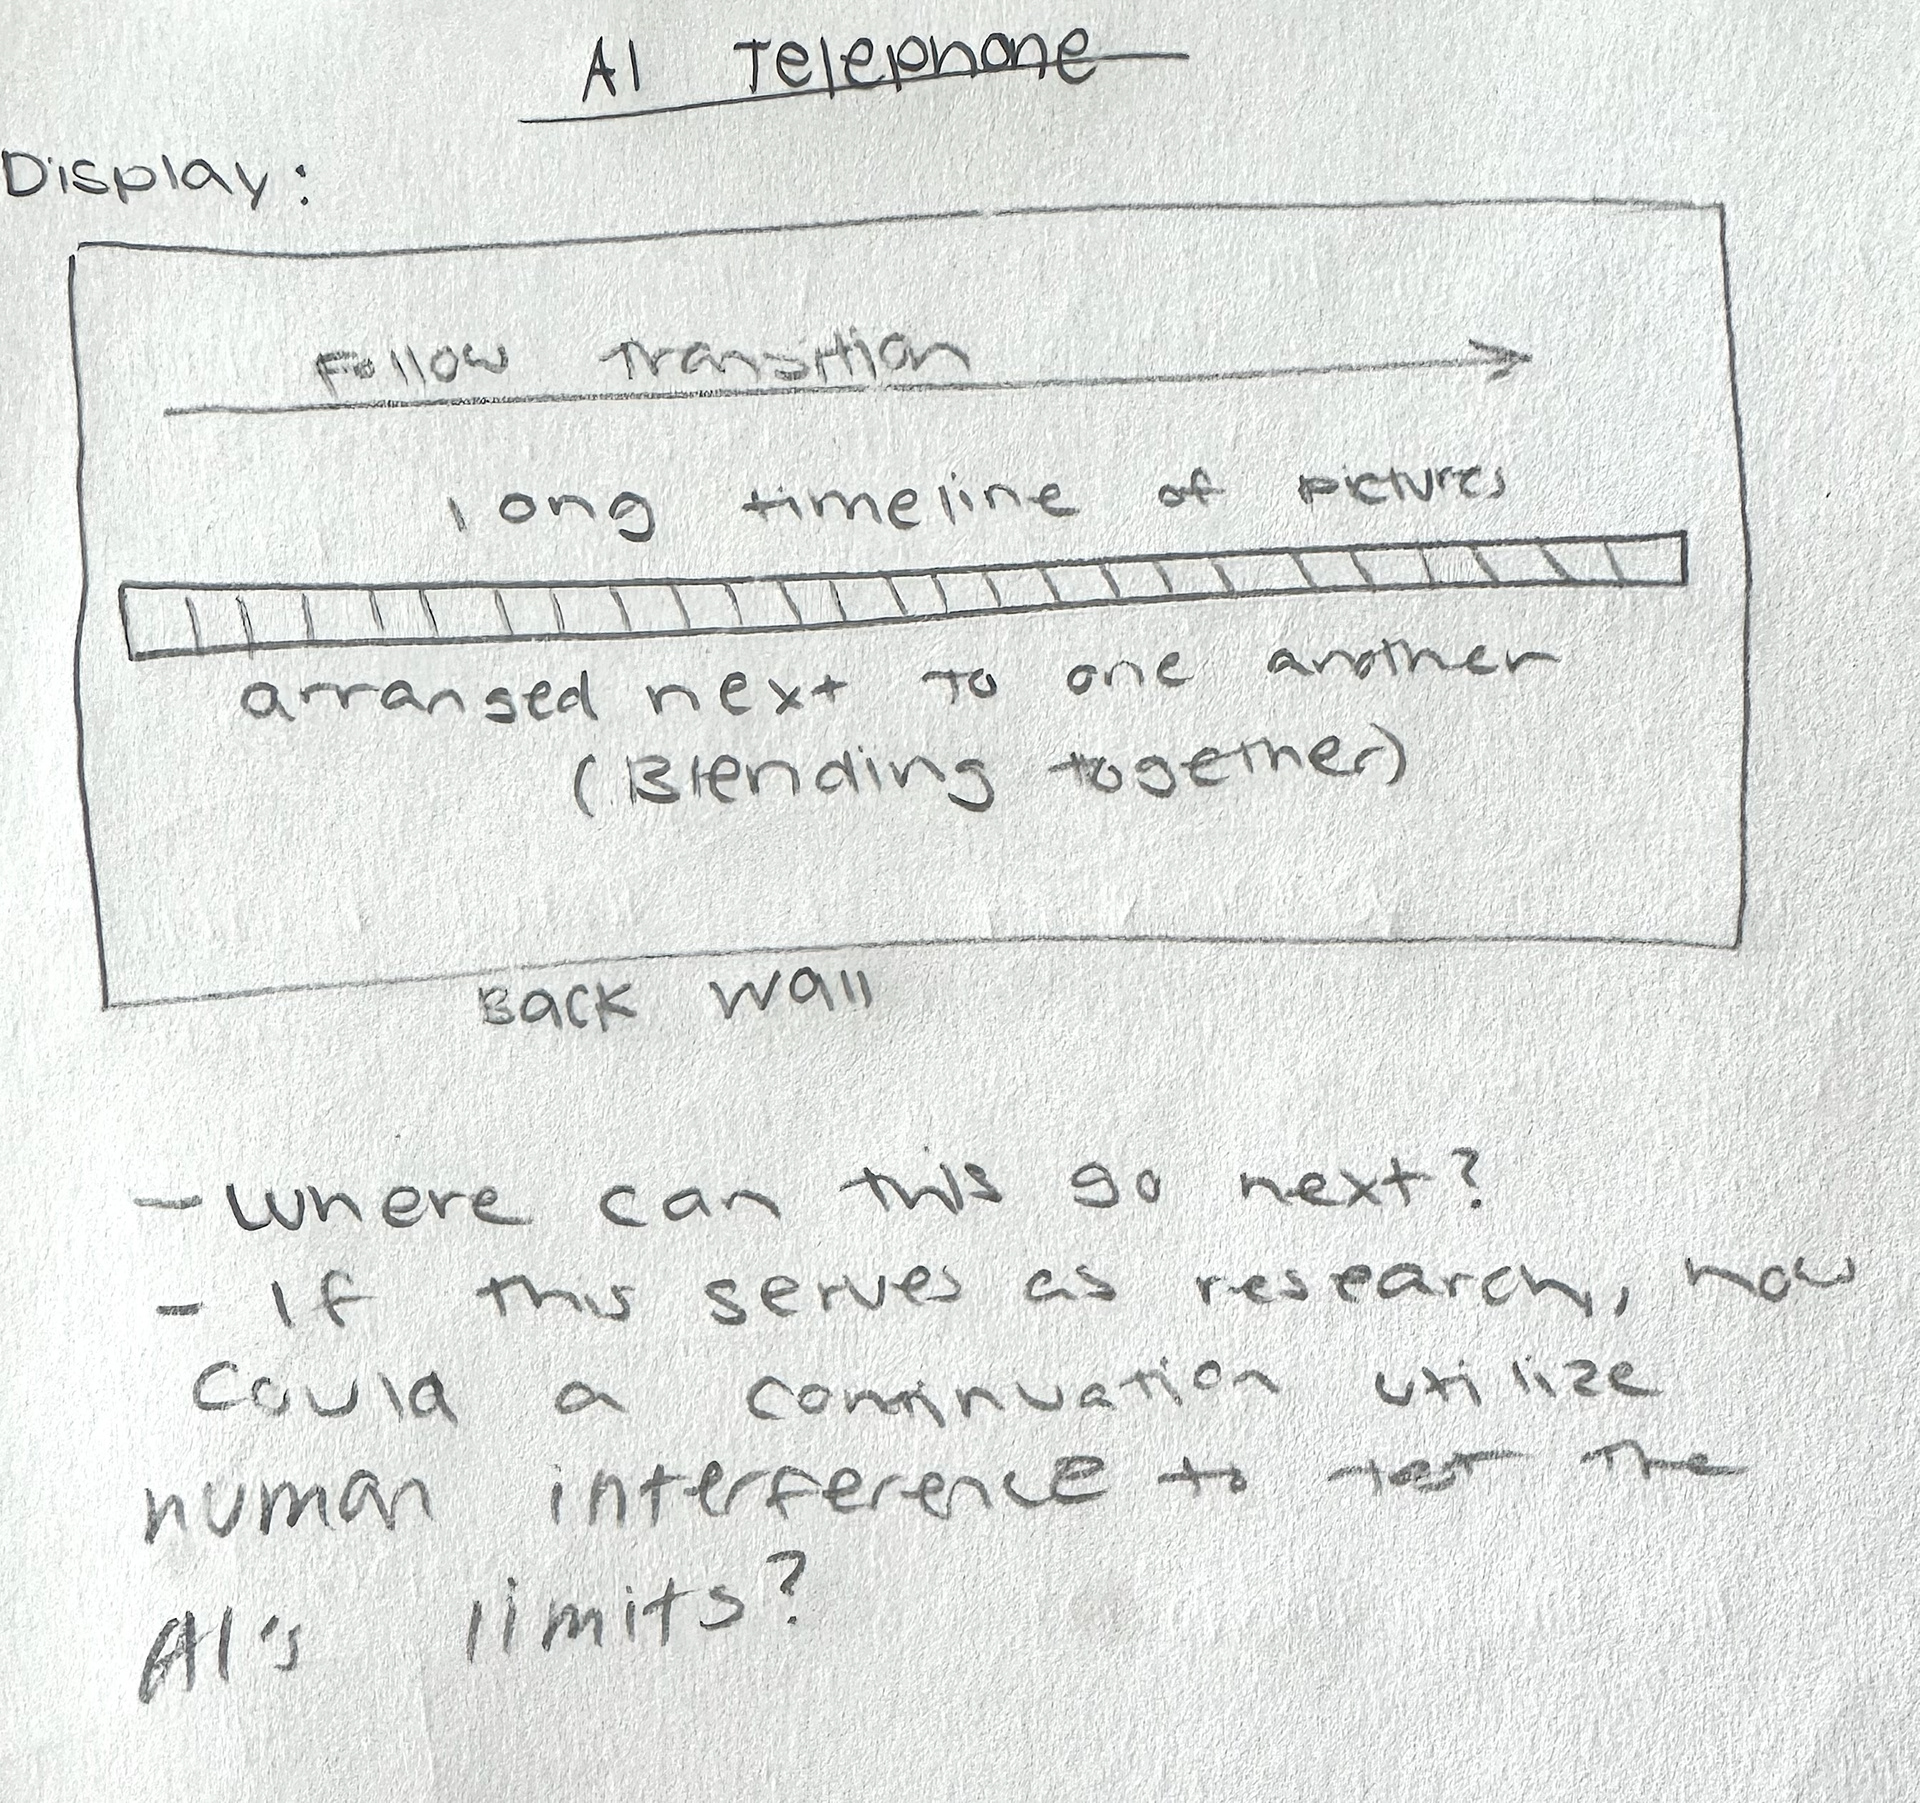 AI Telephone
Display:
Follow Transition
long timeline of pictures
arranged next to one another
(Blending together)
Back Wall
- Where can this go next?
- If this serves as research, how
could a continuation utilize
human interference to test the
AI's limits?